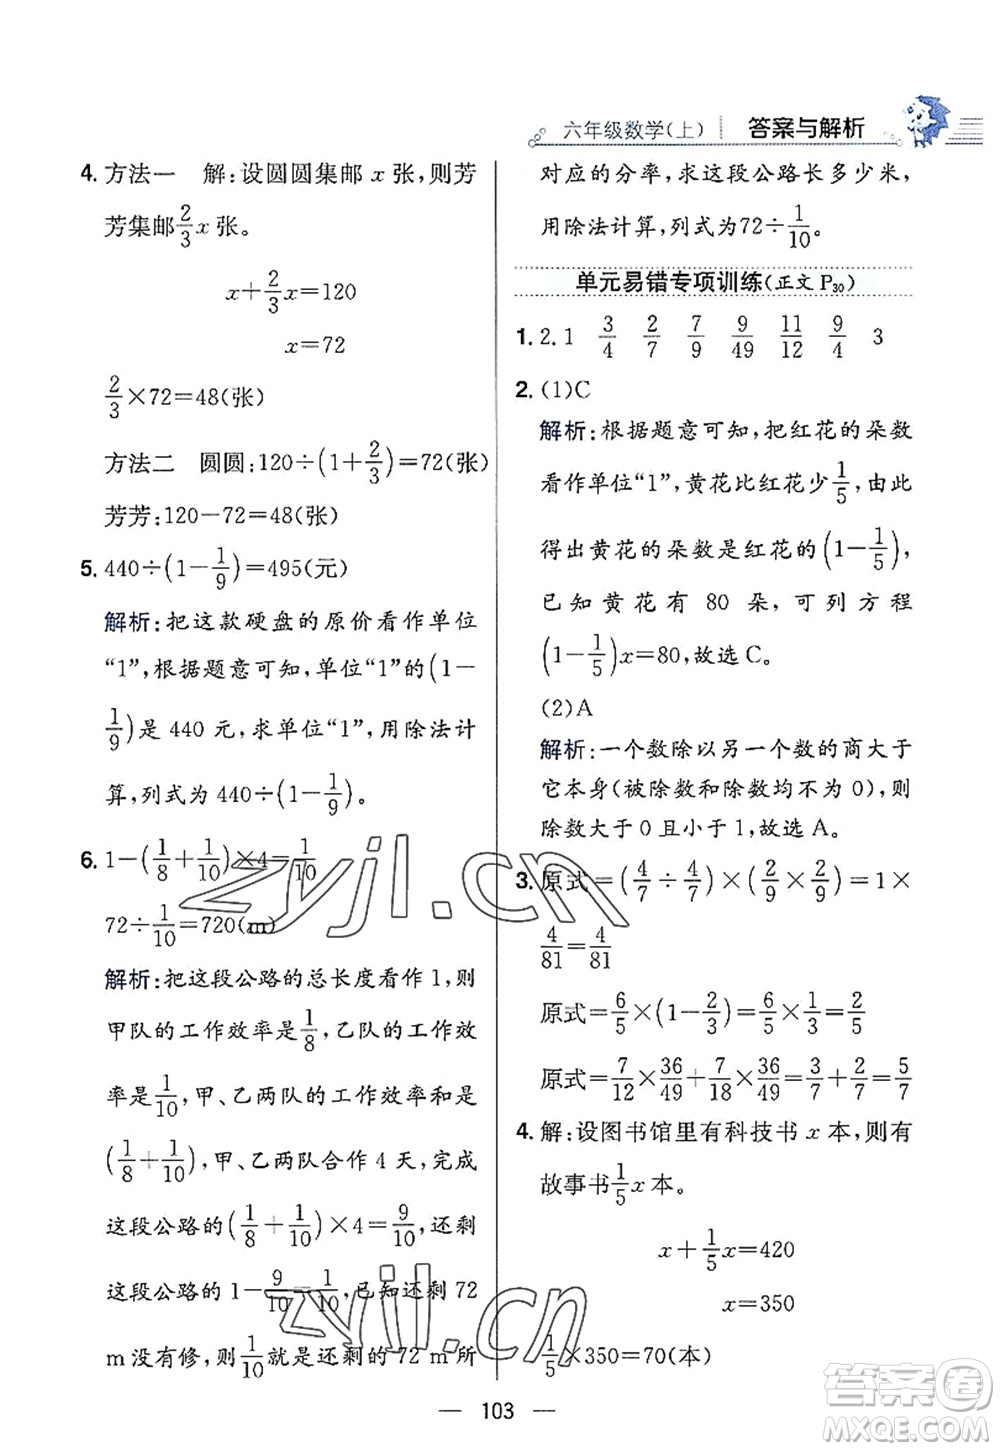 六年级数学(上) 答案与解析
4. 方法一 解:设圆圆集邮 x 张,则芳
芳集邮2/3x 张。
x+2/3x=120
x=72
2/3×72=48(张)
方法二 圆圆:120÷(1+2/3)=72(张)
芳芳:120-72=48(张)
5. 440÷(1-1/9)=495(元)
解析:把这款硬盘的原价看作单位
“1”,根据题意可知,单位“1”的(1-
1/9)是 440 元,求单位“1”,用除法计
算,列式为 440÷(1-1/9)。
6. 1-(1/8+1/10)×4=1/10
72÷1/10=720(m)
解析:把这段公路的总长度看作 1,则
甲队的工作效率是1/8,乙队的工作效
率是1/10,甲、乙两队的工作效率和是
(1/8+1/10),甲、乙两队合作 4 天,完成
这段公路的(1/8+1/10)×4=9/10,还剩
这段公路的 1-9/10=1/10,已知还剩 72
m 没有修,则1/10就是还剩的 72 m 所
对应的分率,求这段公路长多少米,
用除法计算,列式为72÷1/10。
单元易错专项训练(正文 P30)
1. 2.1 3/4 2/7 7/9 9/49 11/12 9/4 3
2. (1)C
解析:根据题意可知,把红花的朵数
看作单位“1”,黄花比红花少1/5,由此
得出黄花的朵数是红花的(1-1/5),
已知黄花有 80 朵,可列方程
(1-1/5)x=80,故选 C。
(2)A
解析:一个数除以另一个数的商大于
它本身(被除数和除数均不为 0),则
除数大于 0 且小于 1,故选 A。
3. 原式=(4/7÷4/7)×(2/9×2/9)=1×
4/81=4/81
原式=6/5×(1-2/3)=6/5×1/3=2/5
原式=7/12×36/49+7/18×36/49=3/7+2/7=5/7
4. 解:设图书馆里有科技书 x 本,则有
故事书1/5x 本。
x+1/5x=420
x=350
1/5×350=70(本)
103
zyjl.cn
zyjl.cn
答案圈
MXQE.COM